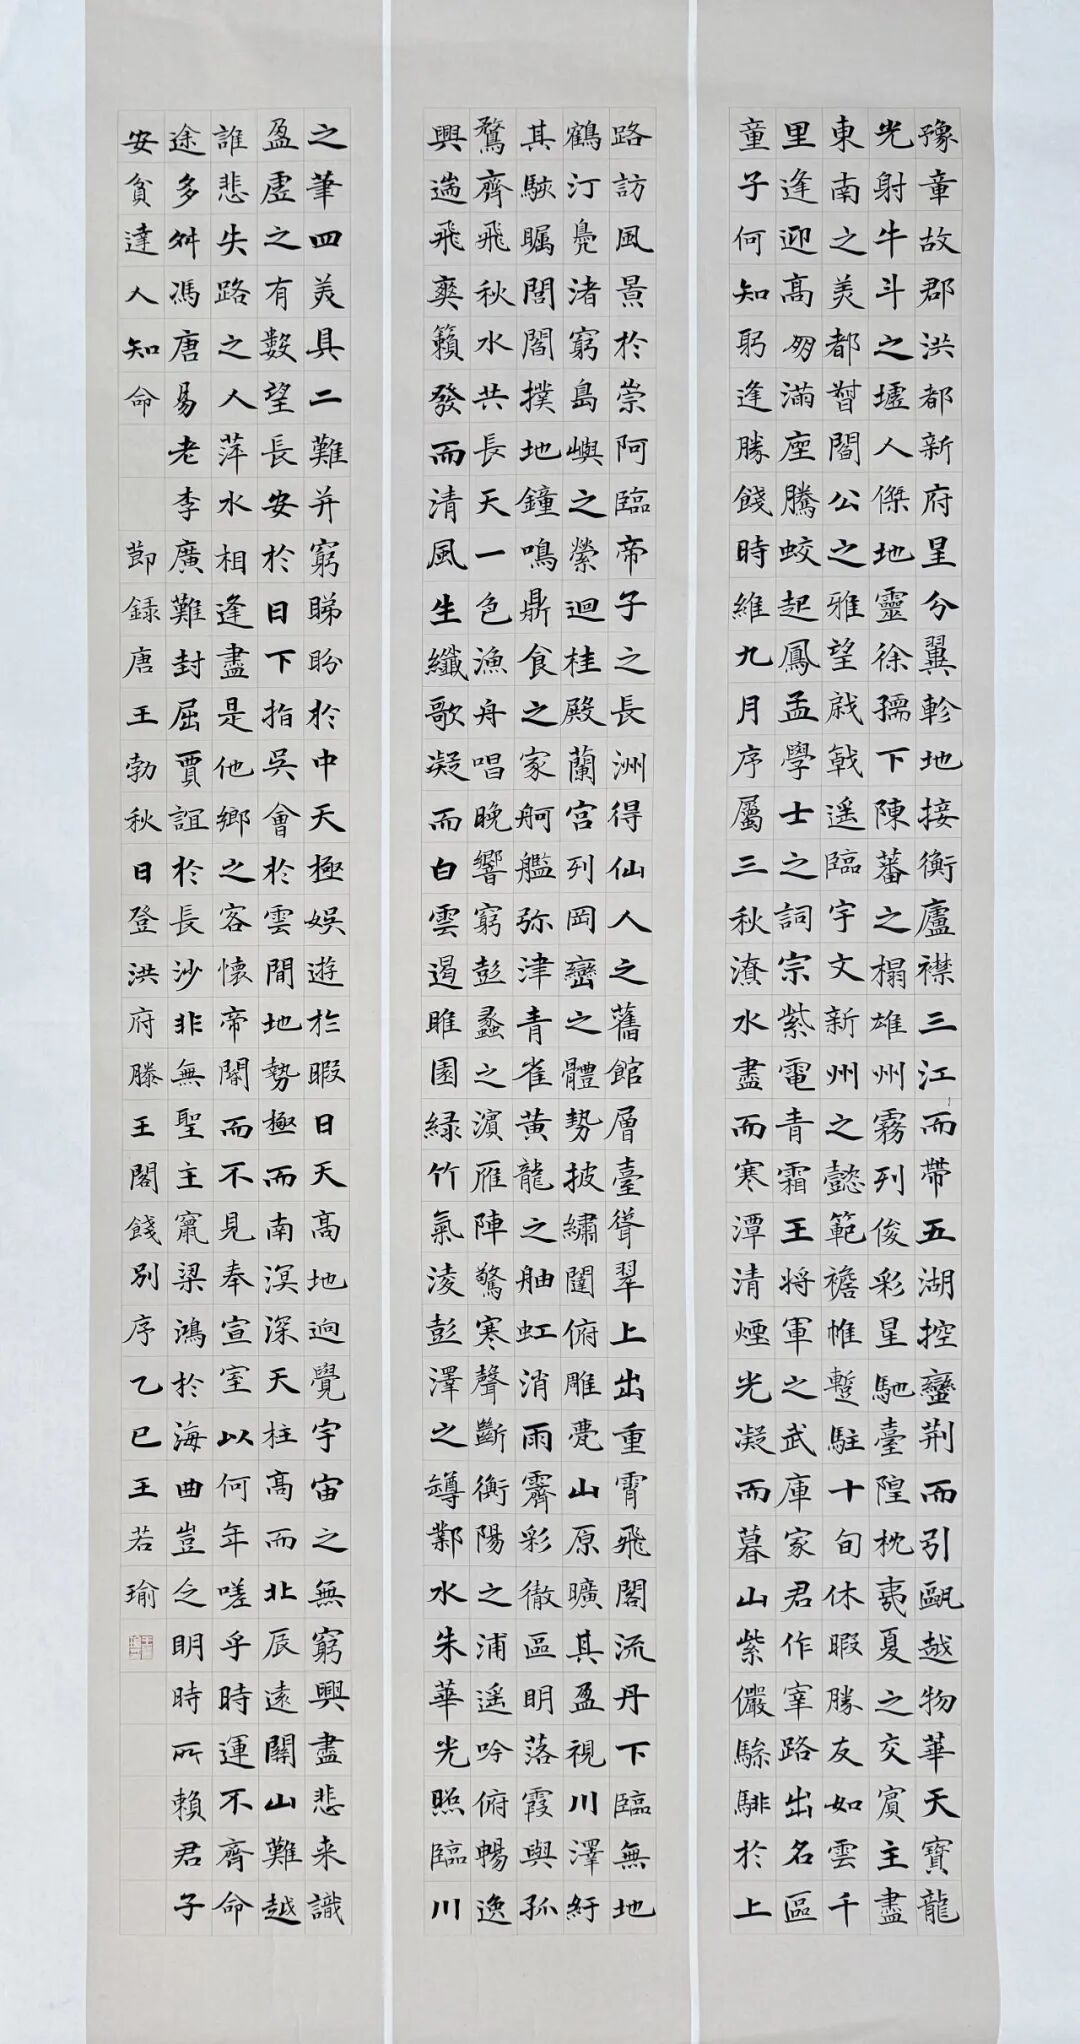 豫章故郡洪都新府星分翼軫地接衡廬襟三江而帶五湖控蠻荊而引甌越物華天寶龍
光射牛斗之墟人傑地靈徐孺下陳蕃之榻雄州霧列俊彩星馳臺隍枕夷夏之交賓主盡
東南之美都督閻公之雅望棨戟遙臨宇文新州之懿範襜帷暫駐十旬休暇勝友如雲千
里逢迎高朋滿座騰蛟起鳳孟學士之詞宗紫電青霜王將軍之武庫家君作宰路出名區
童子何知躬逢勝餞時維九月序屬三秋潦水盡而寒潭清煙光凝而暮山紫儼驂騑於上
路訪風景於崇阿臨帝子之長洲得仙人之舊館層臺聳翠上出重霄飛閣流丹下臨無地
鶴汀鳧渚窮島嶼之縈迴桂殿蘭宮列岡巒之體勢披繡闥俯雕甍山原曠其盈視川澤紆
其駭矚閭閻撲地鐘鳴鼎食之家舸艦弥津青雀黃龍之舳虹消雨霽彩徹區明落霞與孤
鶩齊飛秋水共長天一色漁舟唱晚響窮彭蠡之濱雁陣驚寒聲斷衡陽之浦遙吟俯暢逸
興遄飛爽籟發而清風生纖歌凝而白雲遏睢園綠竹氣淩彭澤之罇鄴水朱華光照臨川
之筆四美具二難并窮睇盼於中天極娛遊於暇日天高地迥覺宇宙之無窮興盡悲来識
盈虛之有數望長安於日下指吳會於雲間地勢極而南溟深天柱高而北辰遠關山難越
誰悲失路之人萍水相逢盡是他鄉之客懷帝閽而不見奉宣室以何年嗟乎時運不齊命
途多舛馮唐易老李廣難封屈賈誼於長沙非無聖主竄梁鴻於海曲豈乏明時所賴君子
安貧達人知命 節錄唐王勃秋日登洪府滕王閣餞別序乙巳王若瑜